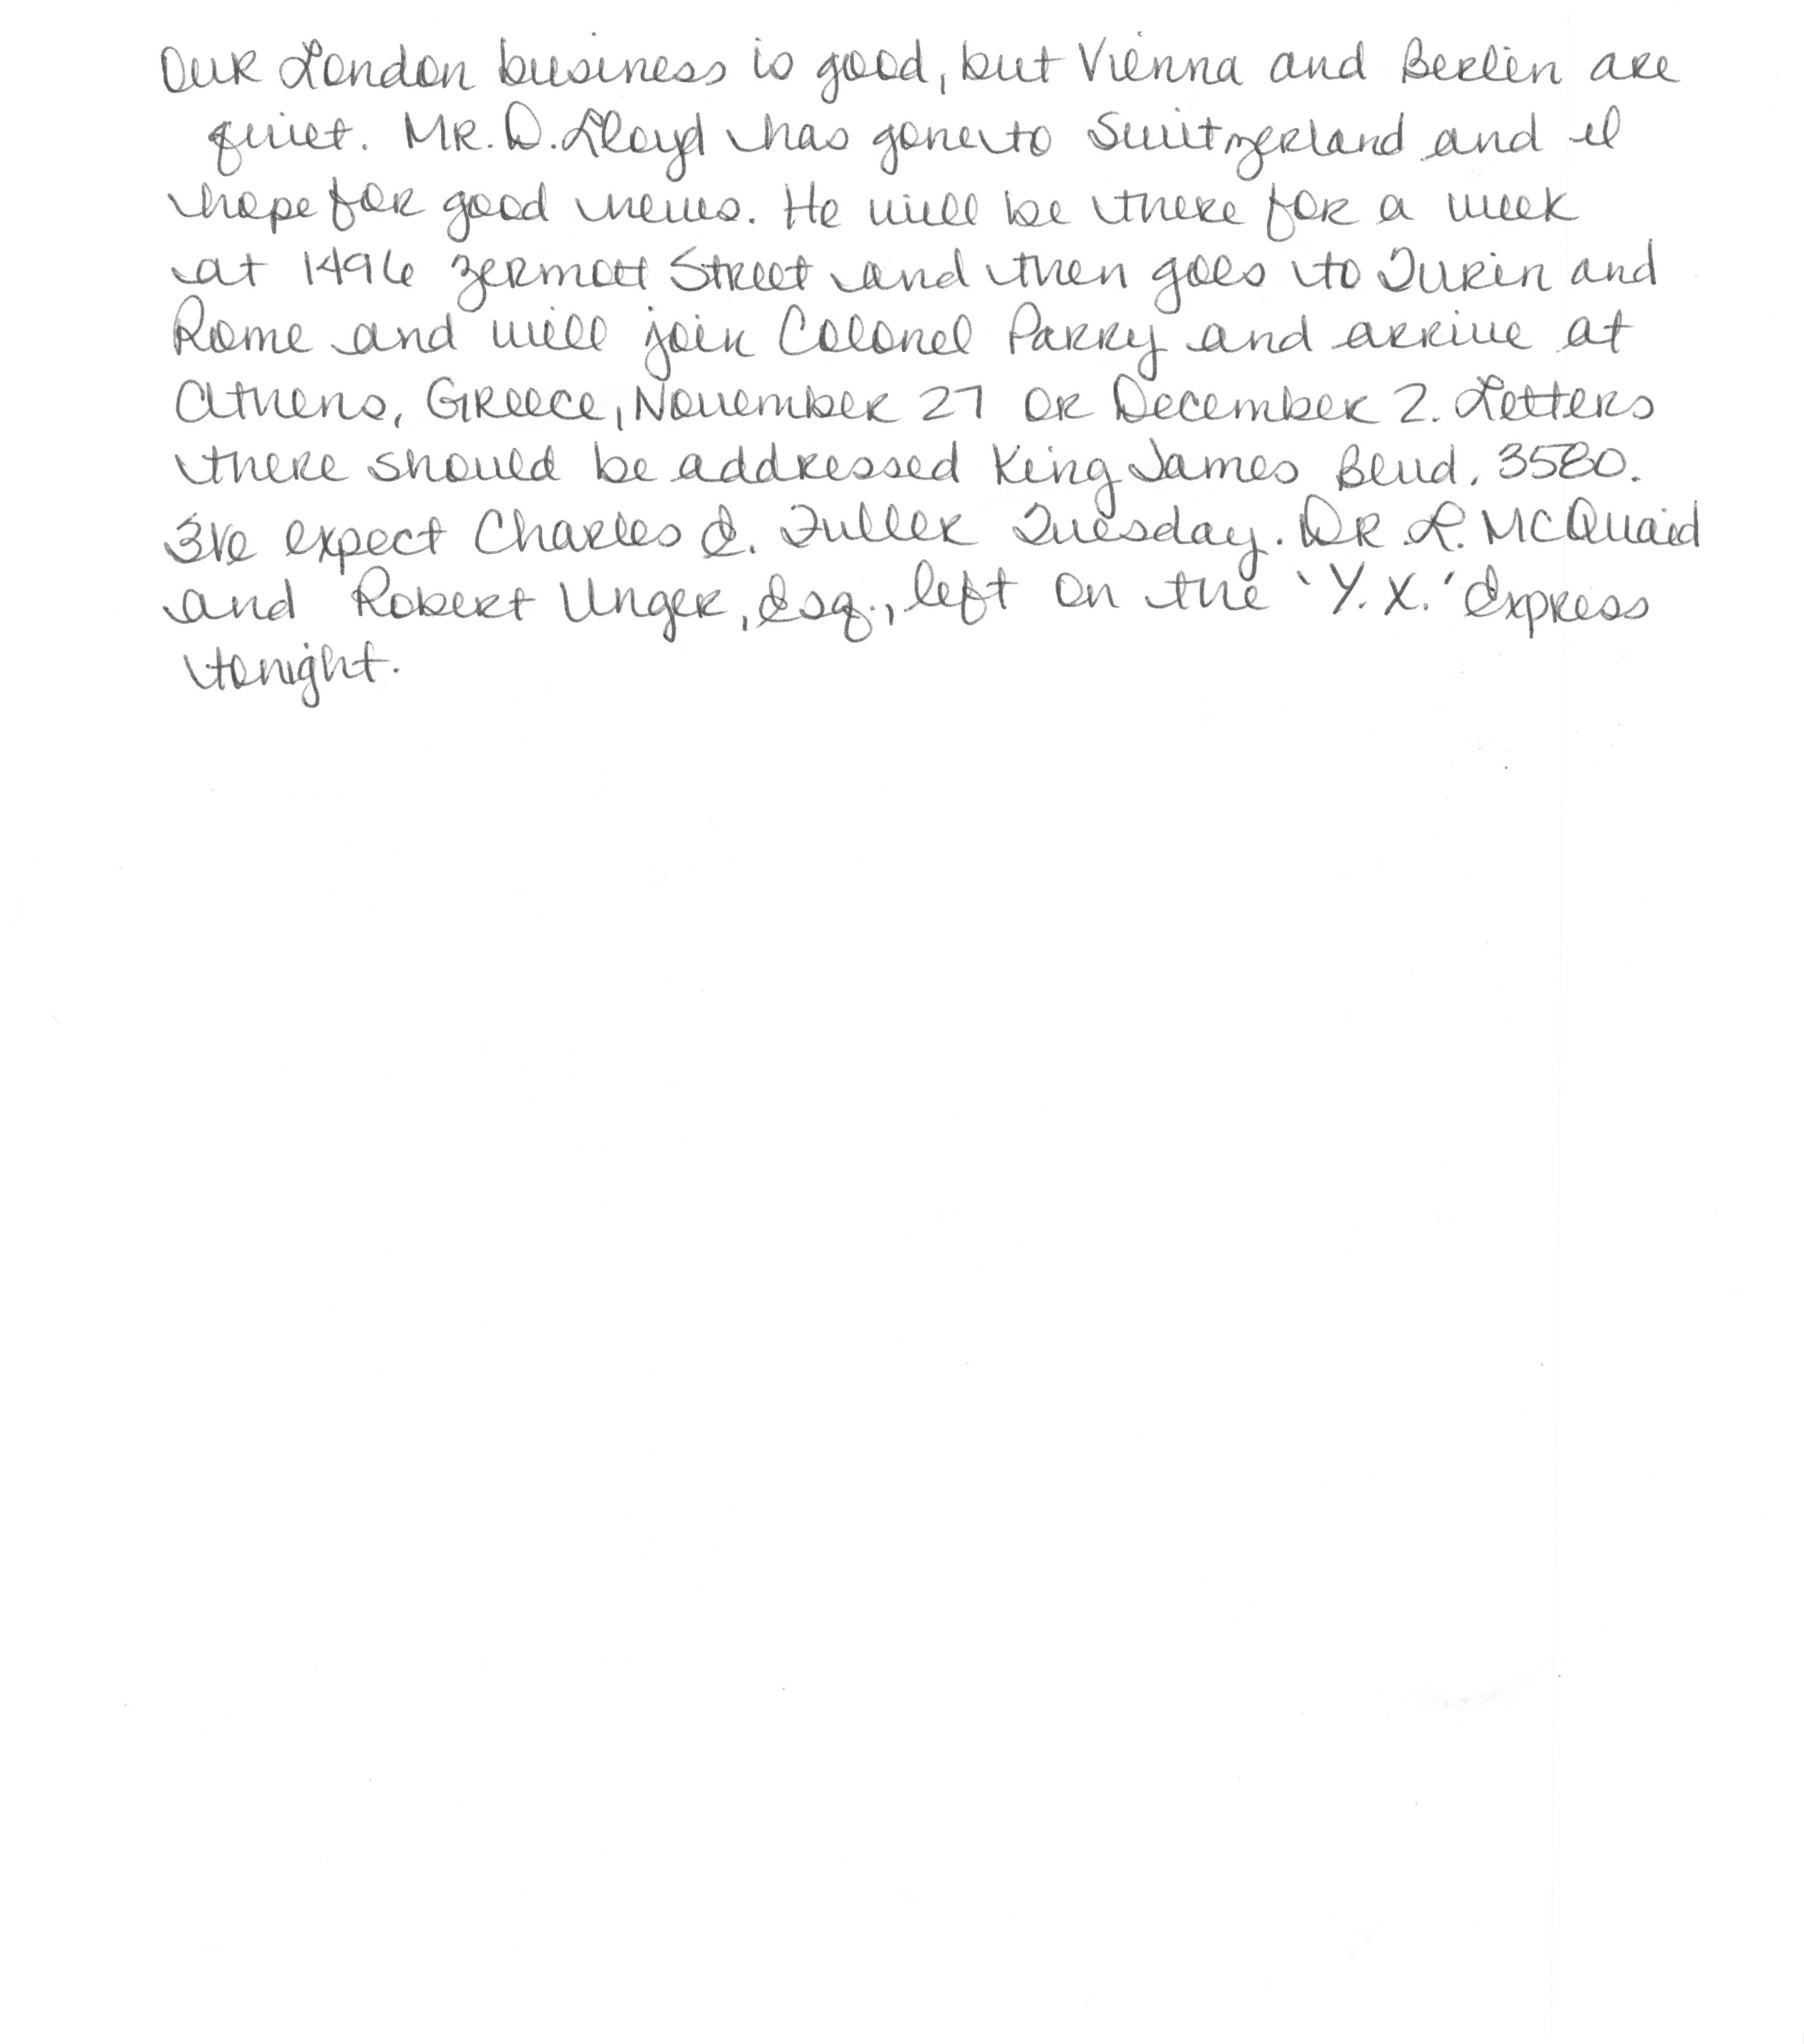 Our London business is good, but Vienna and Berlin are
quiet. Mr. D. Lloyd has gone to Switzerland and I
hope for good news. He will be there for a week
at 1496 Zermott Street and then goes to Turin and
Rome and will join Colonel Parry and arrive at
Athens, Greece, November 27 or December 2. Letters
there should be addressed King James Blvd. 3580.
We expect Charles E. Fuller Tuesday. Dr L. McQuaid
and Robert Unger, Esq., left on the 'Y.X.' Express
tonight.